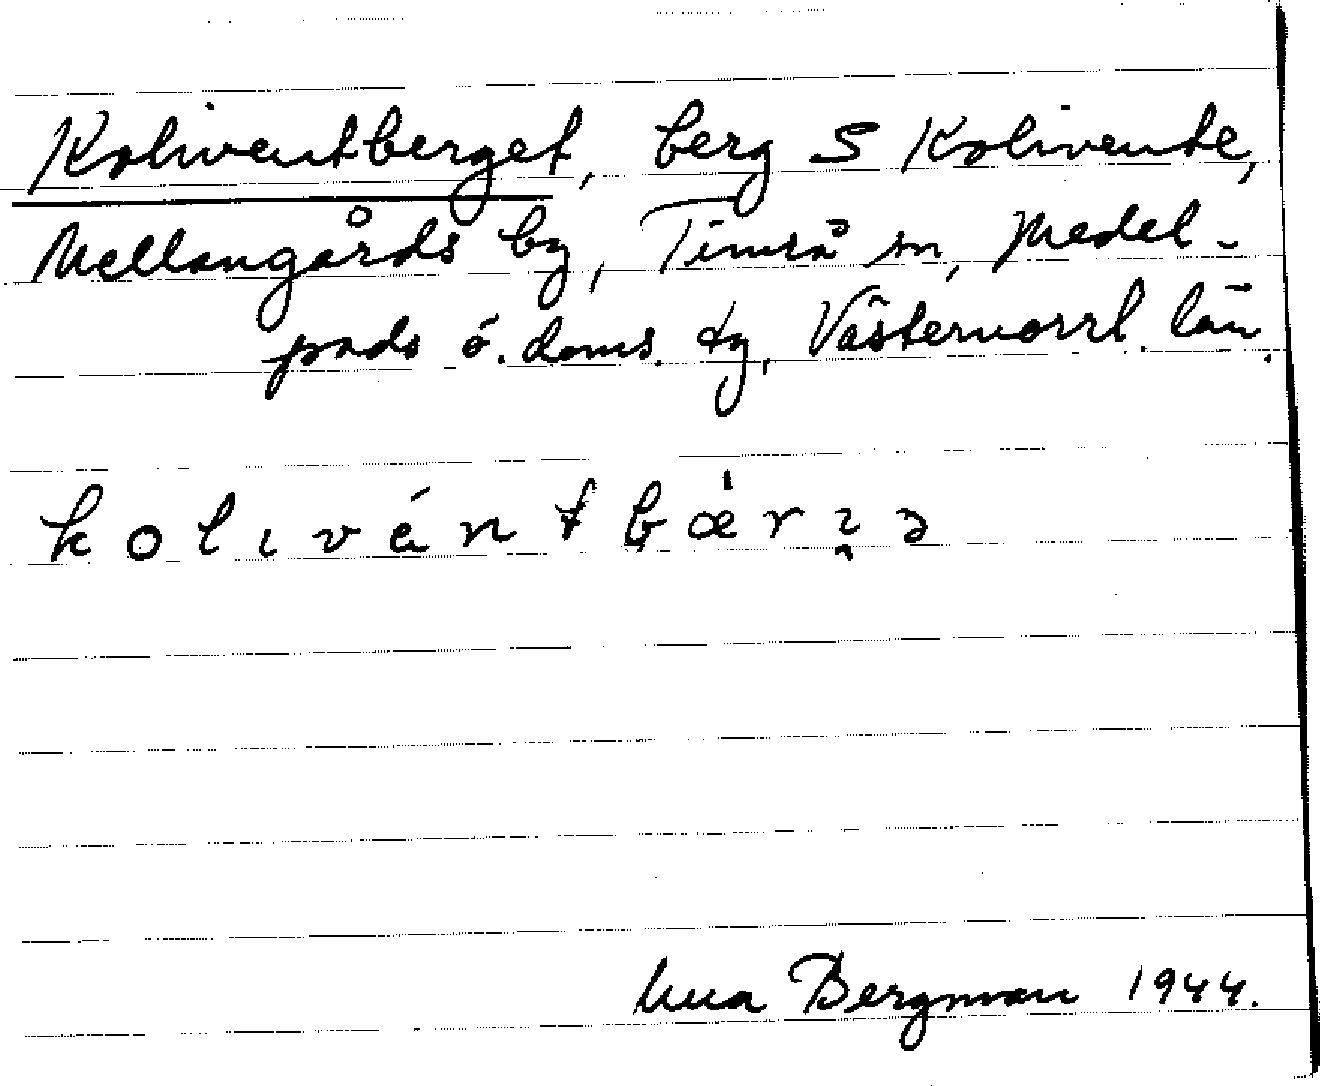 Koliventberget, berg S Kolivente,
Mellangårds by, Timrå sn, Medel-
pads ö. doms. tg, Västernorrl. län.
k o l ı v é n t b æ̍ r ɀ̯ ə
Bergman 1944.